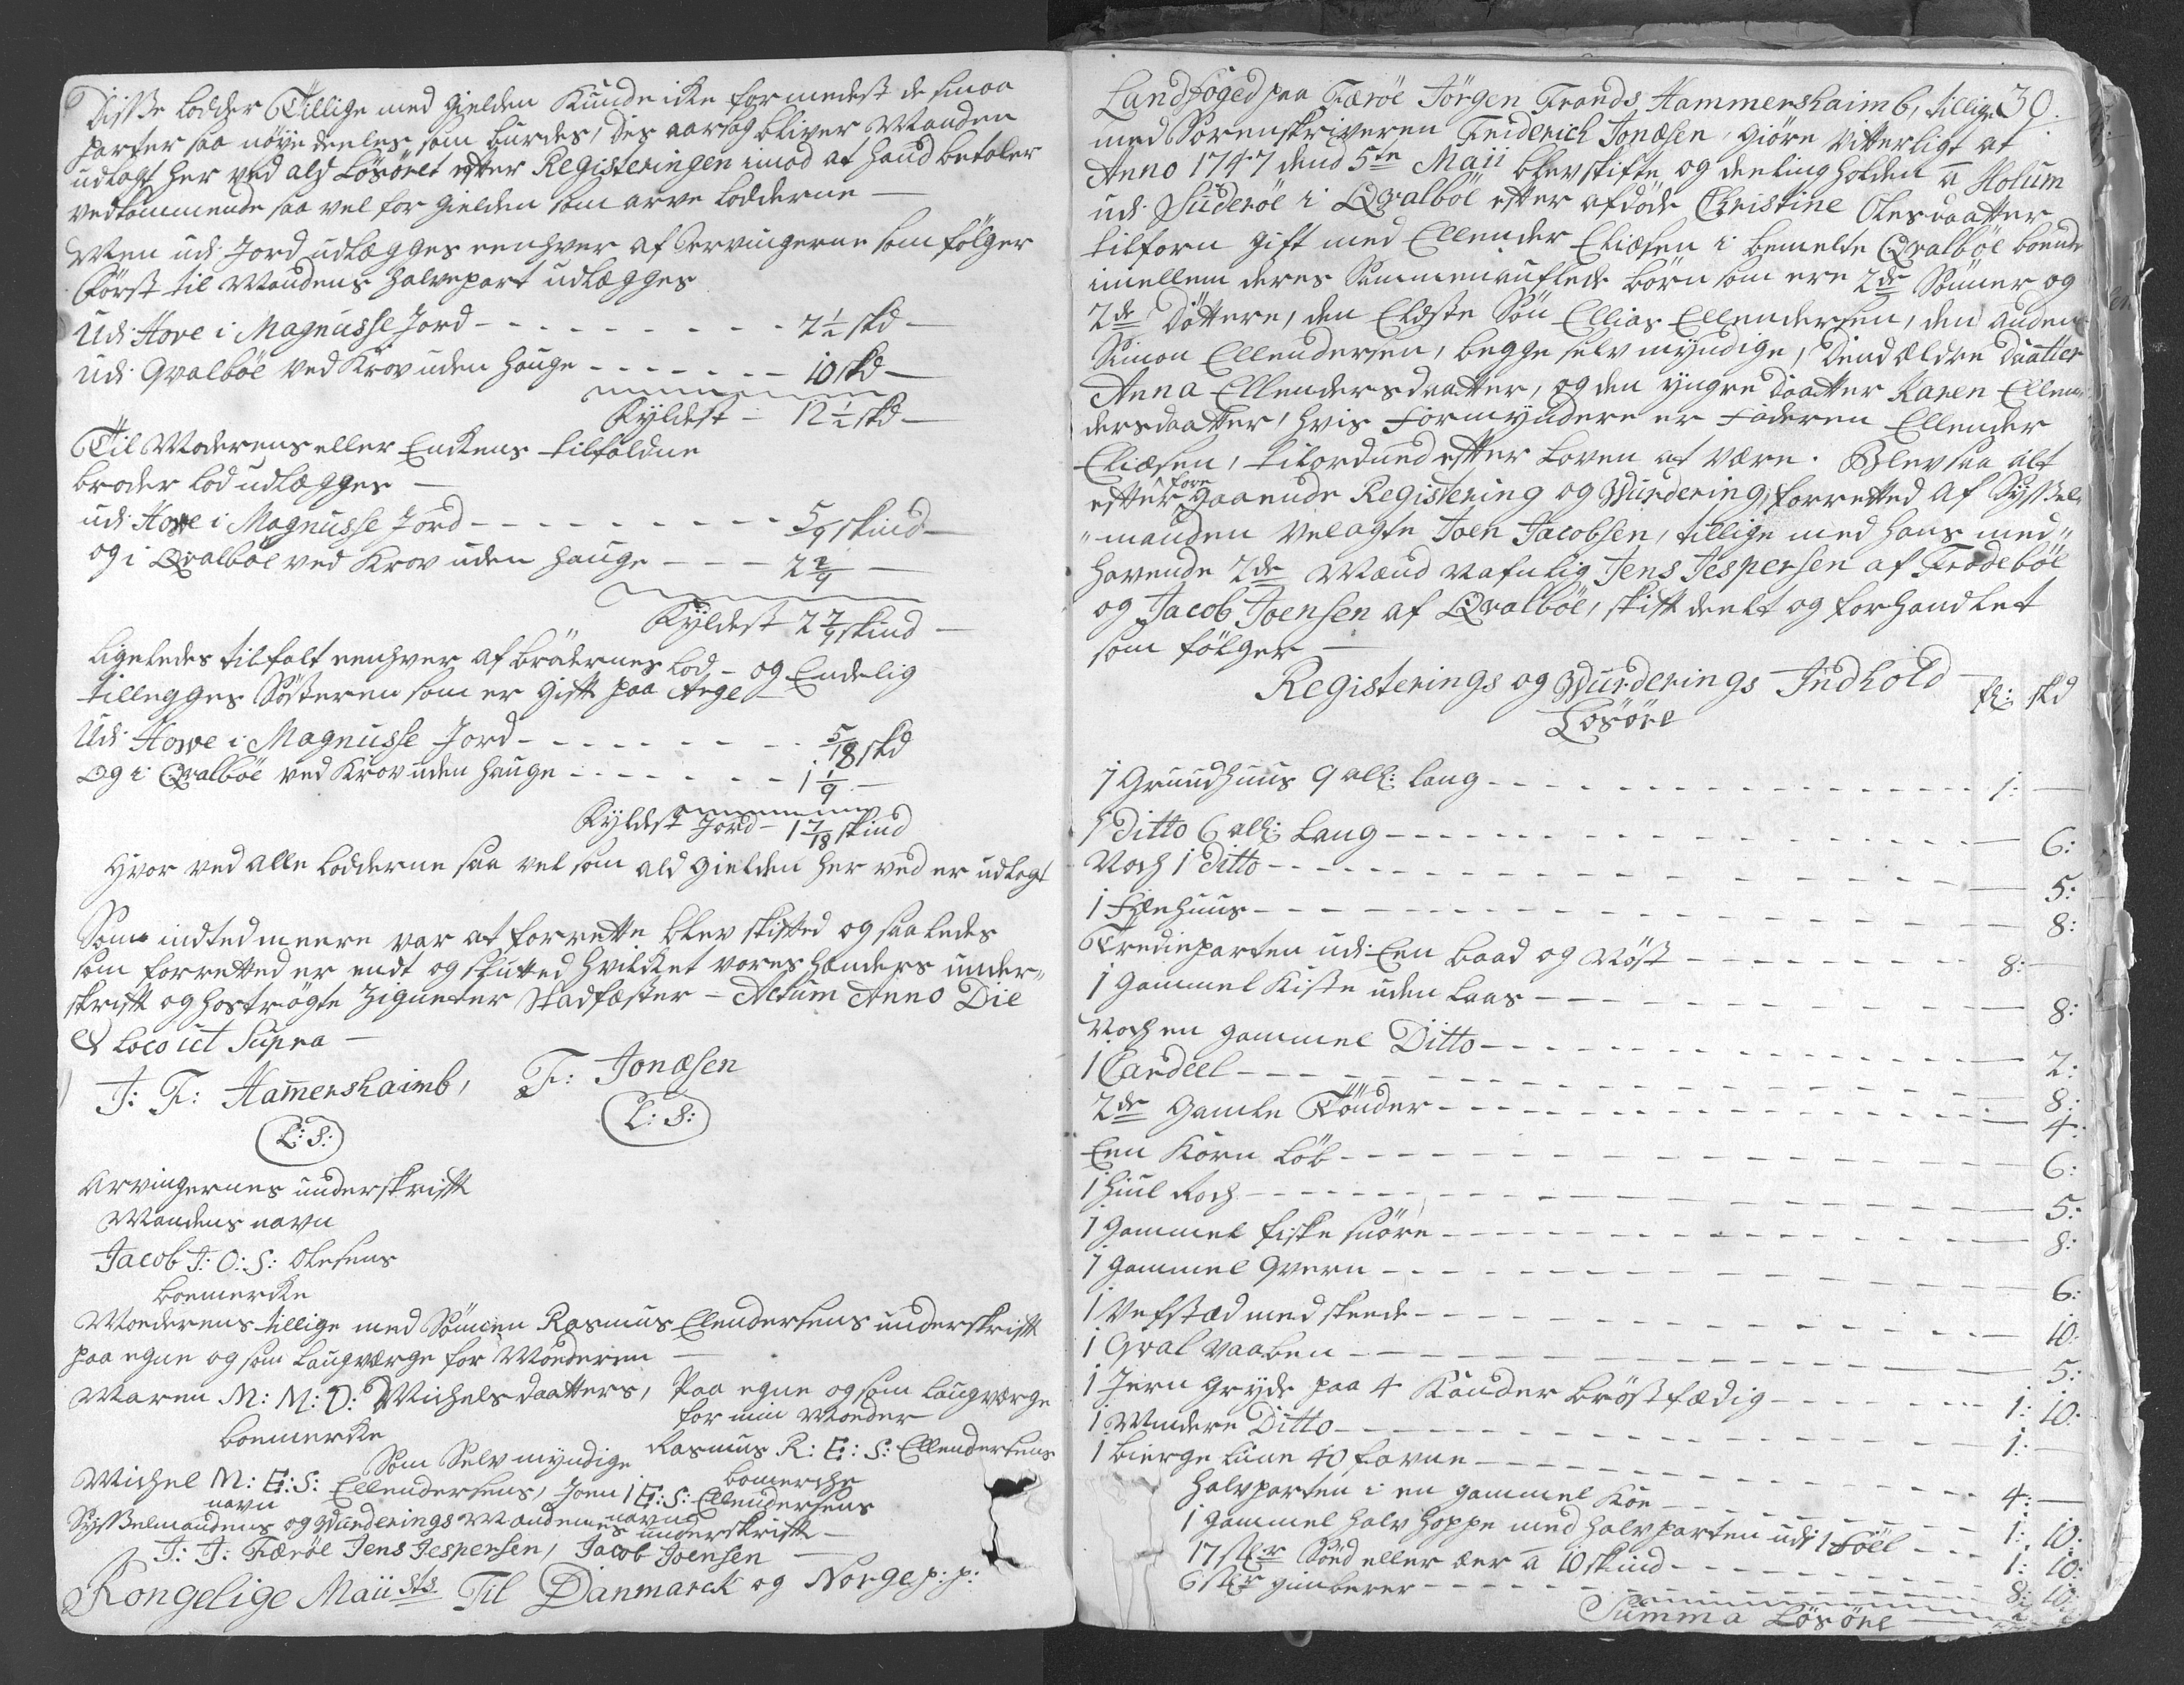 Disse lodder Tillige med gielden Kunde icke formedelst de smaa
parter saa nöye deeles som burdes, Des aarsag bliver Manden
udlagt her ved ald Lösöret efter Registeringen imod at hand betaler
vedkommende saa vel for gielden som arve Lodderne —
Men udi Jord udlægges eenhver af Arvingerne som fölger
Först til Mandens halvepart udlægges
Udi Hove i Magnusse Jord - - - 2½ skd —
udi Qvalböe ved Krov uden hauge - - - 10 skd —
Kyldest - 12½ skd —
Til Moderens eller Enckens tilfaldne
broder lod udlægges —
udi Howe i Magnusse Jord - - - 5/9 skind —
og i Qvalböe ved Krov uden hauge - - - 2 2/9 —
Kyldest 2 7/9 skind —
Ligeledes tilfalt eenhver af brödernes Lod - og Endelig
tillegges Söstteren som er gift paa Arge —
Udi Howe i Magnusse Jord - - - 5/18 skd
Og i Qvalböe ved Krov uden hauge - - - 1 1/9 —
Kyldest Jord - 1 7/18 skind
Hvor ved alle lodderne saa vel som ald gielden her ved er udlagt
Som indted meere var at forrette blev skifted og saaledes
som forretted er endt og slutted hvilcket vores hænders under„
skrift og hoströgte Zigneter stadfæster - Actum Anno Die
& Loco ut Supra —
J: F: Hamershaimb, F: Jonæsen
L: S: L: S:
Arvingernes underskrifft
Mandens navn
Jacob J: O: S: Olesens
boemercke
Moederens tillige med Sönnen Rasmus Ellendersens underskrift
paa egne og som laugværge for Moederen —
Maren M: M: D: Michelsdaatters, Paa egne og som laugværge
boemercke for min Moeder
Som Selv myndige Rasmus R: E: S: Ellendersens
Michel M: E: S: Ellendersens, Joen I E: S: Ellendersens bomerche
navn navn
Sysselmandens og Wurderings Mændenes underskrift —
J: J: Færöe Jens Jespersen, Jacob Joensen —
Kongelige Maii sts Til Danmarck og Norge p: p:
Landfoged paa Færöe Jörgen Frands Hammershaimb, tillige 30.
med Sorenskriveren Friderich Jonæsen, giöre Vitterligt at
Anno 1747 dend 5te Maii blev skifte og deeling holden a Holum
udi Suderöe i Qvalböe efter afdöde Christine Olesdaatter
tilforn gift med Ellender Eliæsen i bemelte Qvalböe boende
imellem deres Sammenauflede börn som ere 2de Sönner og
2de Döttere, den Eldste Sön Ellias Ellendersen, den anden
Simon Ellendersen, begge selv myndige, Dend ældre Daatter
Anna Ellendersdaatter, og den yngre Daatter Karen Ellen„
dersdaatter, hvis Formyndere er Faderen Ellender
Eliæsen, tilordned efter Loven at være. Blev saa alt
efter foregaaende Registering og Wurdering, forretted af Syssel„
„manden Velagte Joen Jacobsen, tillige med hans med„
havende 2de Mænd nafnlig Jens Jespersen af Frodeböe
og Jacob Joensen af Qvalböe, skift deelt og forhandlet
som fölger —
Registerings og Wurderings Indhold
Lösöre fl: skd
1 Grundhuus 9 all: lang - - - 1: —
1 Ditto 6 all: Lang - - - 6:
Noch 1 Ditto - - - 5:
1 Filehuus - - - 8:
Tredieparten udi Een baad og Nöst - - - 8: —
1 gammel Kiste uden laas - - - 8:
Noch en gammel Ditto - - - 2:
1 Cardeel - - - 8:
2de gamle Tönder - - - 4:
Een Korn Löb - - - 6:
1 Hiul Roch - - - 5:
1 gammel fiske snöre - - - 8:
1 gammel Qvern - - - 6:
1 Vefstæd med skeede - - - 10:
1 Qval vaaben - - - 5:
1 Jern gryde paa 4 Kander bröstfædig - - - 1: 10:
1 Mindere Ditto - - - 1: —
1 bierge Line 40 favne - - - 4: —
halvparten i en gammel Koe - - - 1: 10:
1 gammel halv hoppe med halvparten udi 1 Föel - - - 1: 10:
17 stkr Söed eller ær a 10 skind - - - 8: 10:
6 stkr gimberer - - -
Summa Lösöre